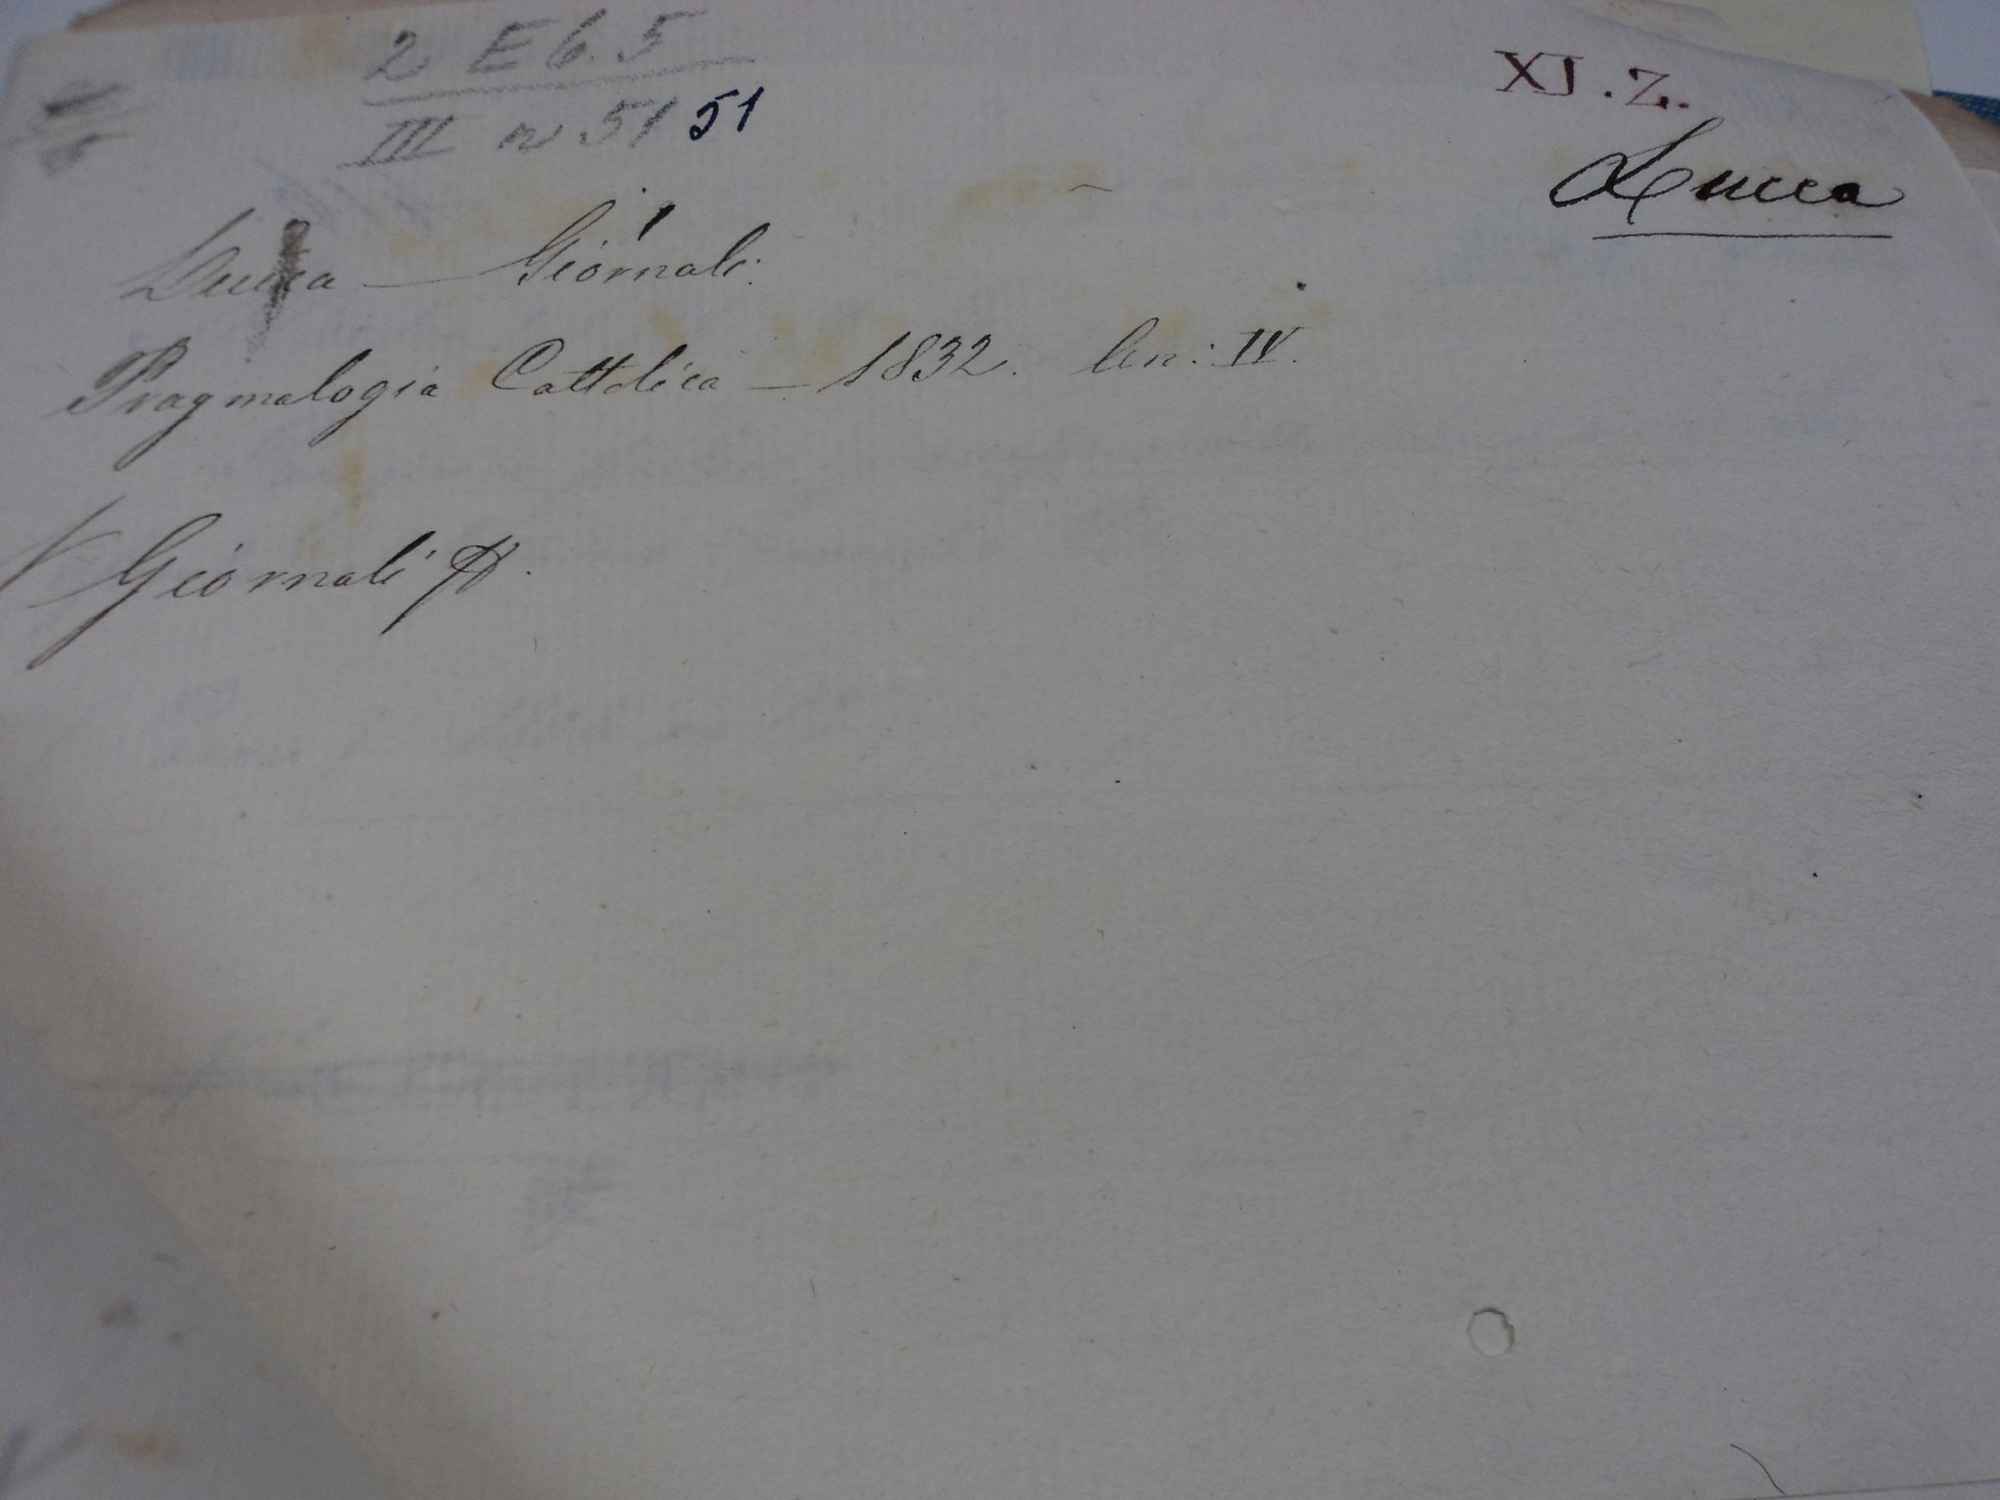 2 E 6.5
III n. 51 51
XI. Z.
Lucca
Lucca — Giornali.
Pragmalogia Cattolica — 1832. An: IV.
Giornali